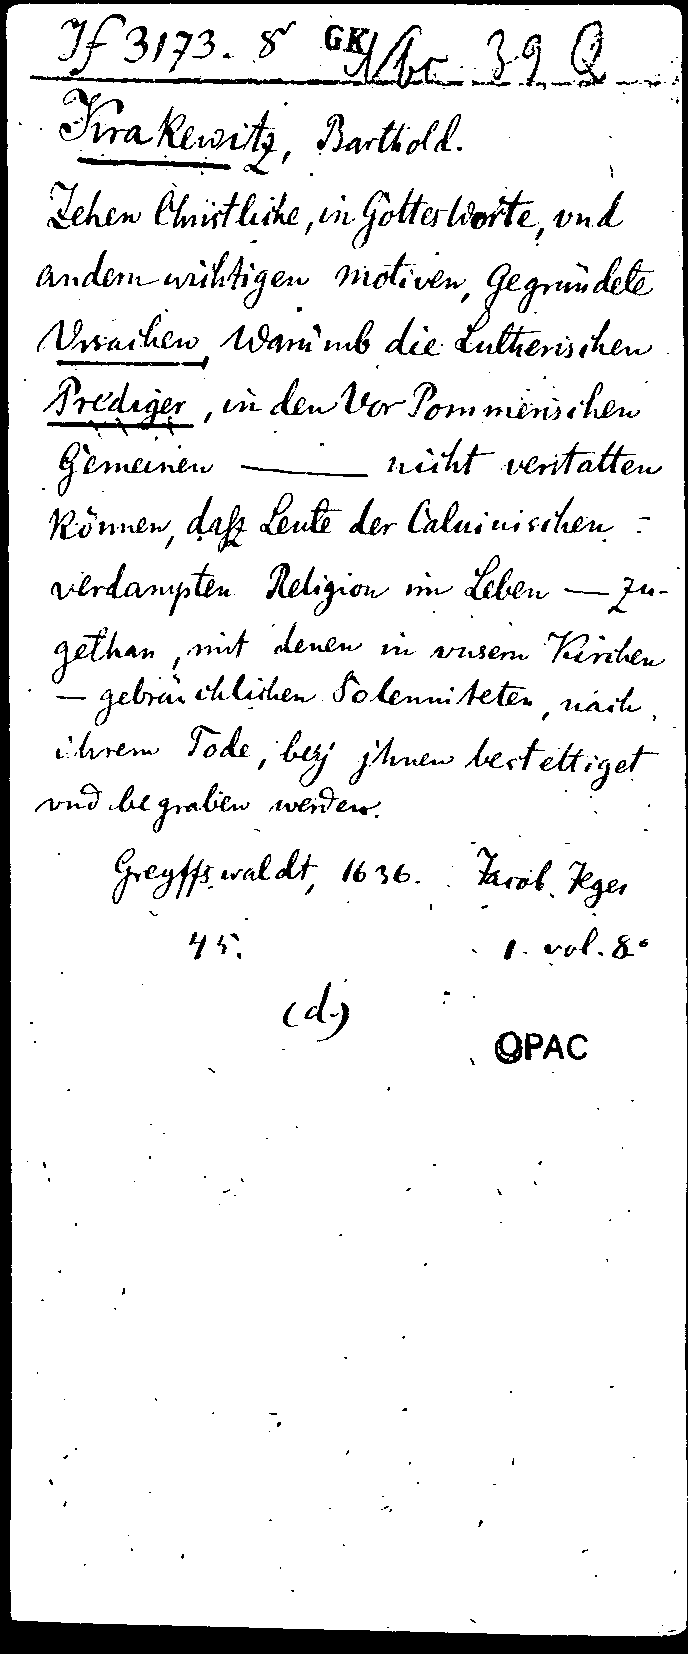 If 3173. 8° GK Nbc 39 Q
Krakewitz, Barthold.
Zehen Christliche, in Gottes Worte, vnd
andern wichtigen motiven, Gegründete
Vrsachen, Warümb die Lutherischen
Prediger, in den Vor Pommerischen
Gemeinen —— nicht verstatten
können, dasz Leute der Caluinischen -
verdampten Religion im Leben — zu-
gethan, mit denen in vnsern Kirchen
— gebräuchlichen Solenniteten, nach
ihrem Tode, beÿ jhnen bestettiget
vnd begraben werden.
Greyffswaldt, 1636. Jacob Jeger
45. 1. vol. 8°
(d.)
OPAC